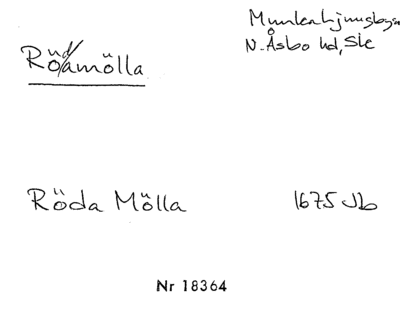 Munkaljungbya
N. Åsbo hd, Ske
Rödamölla
Röda Mölla 1675 Jb
Nr 18364